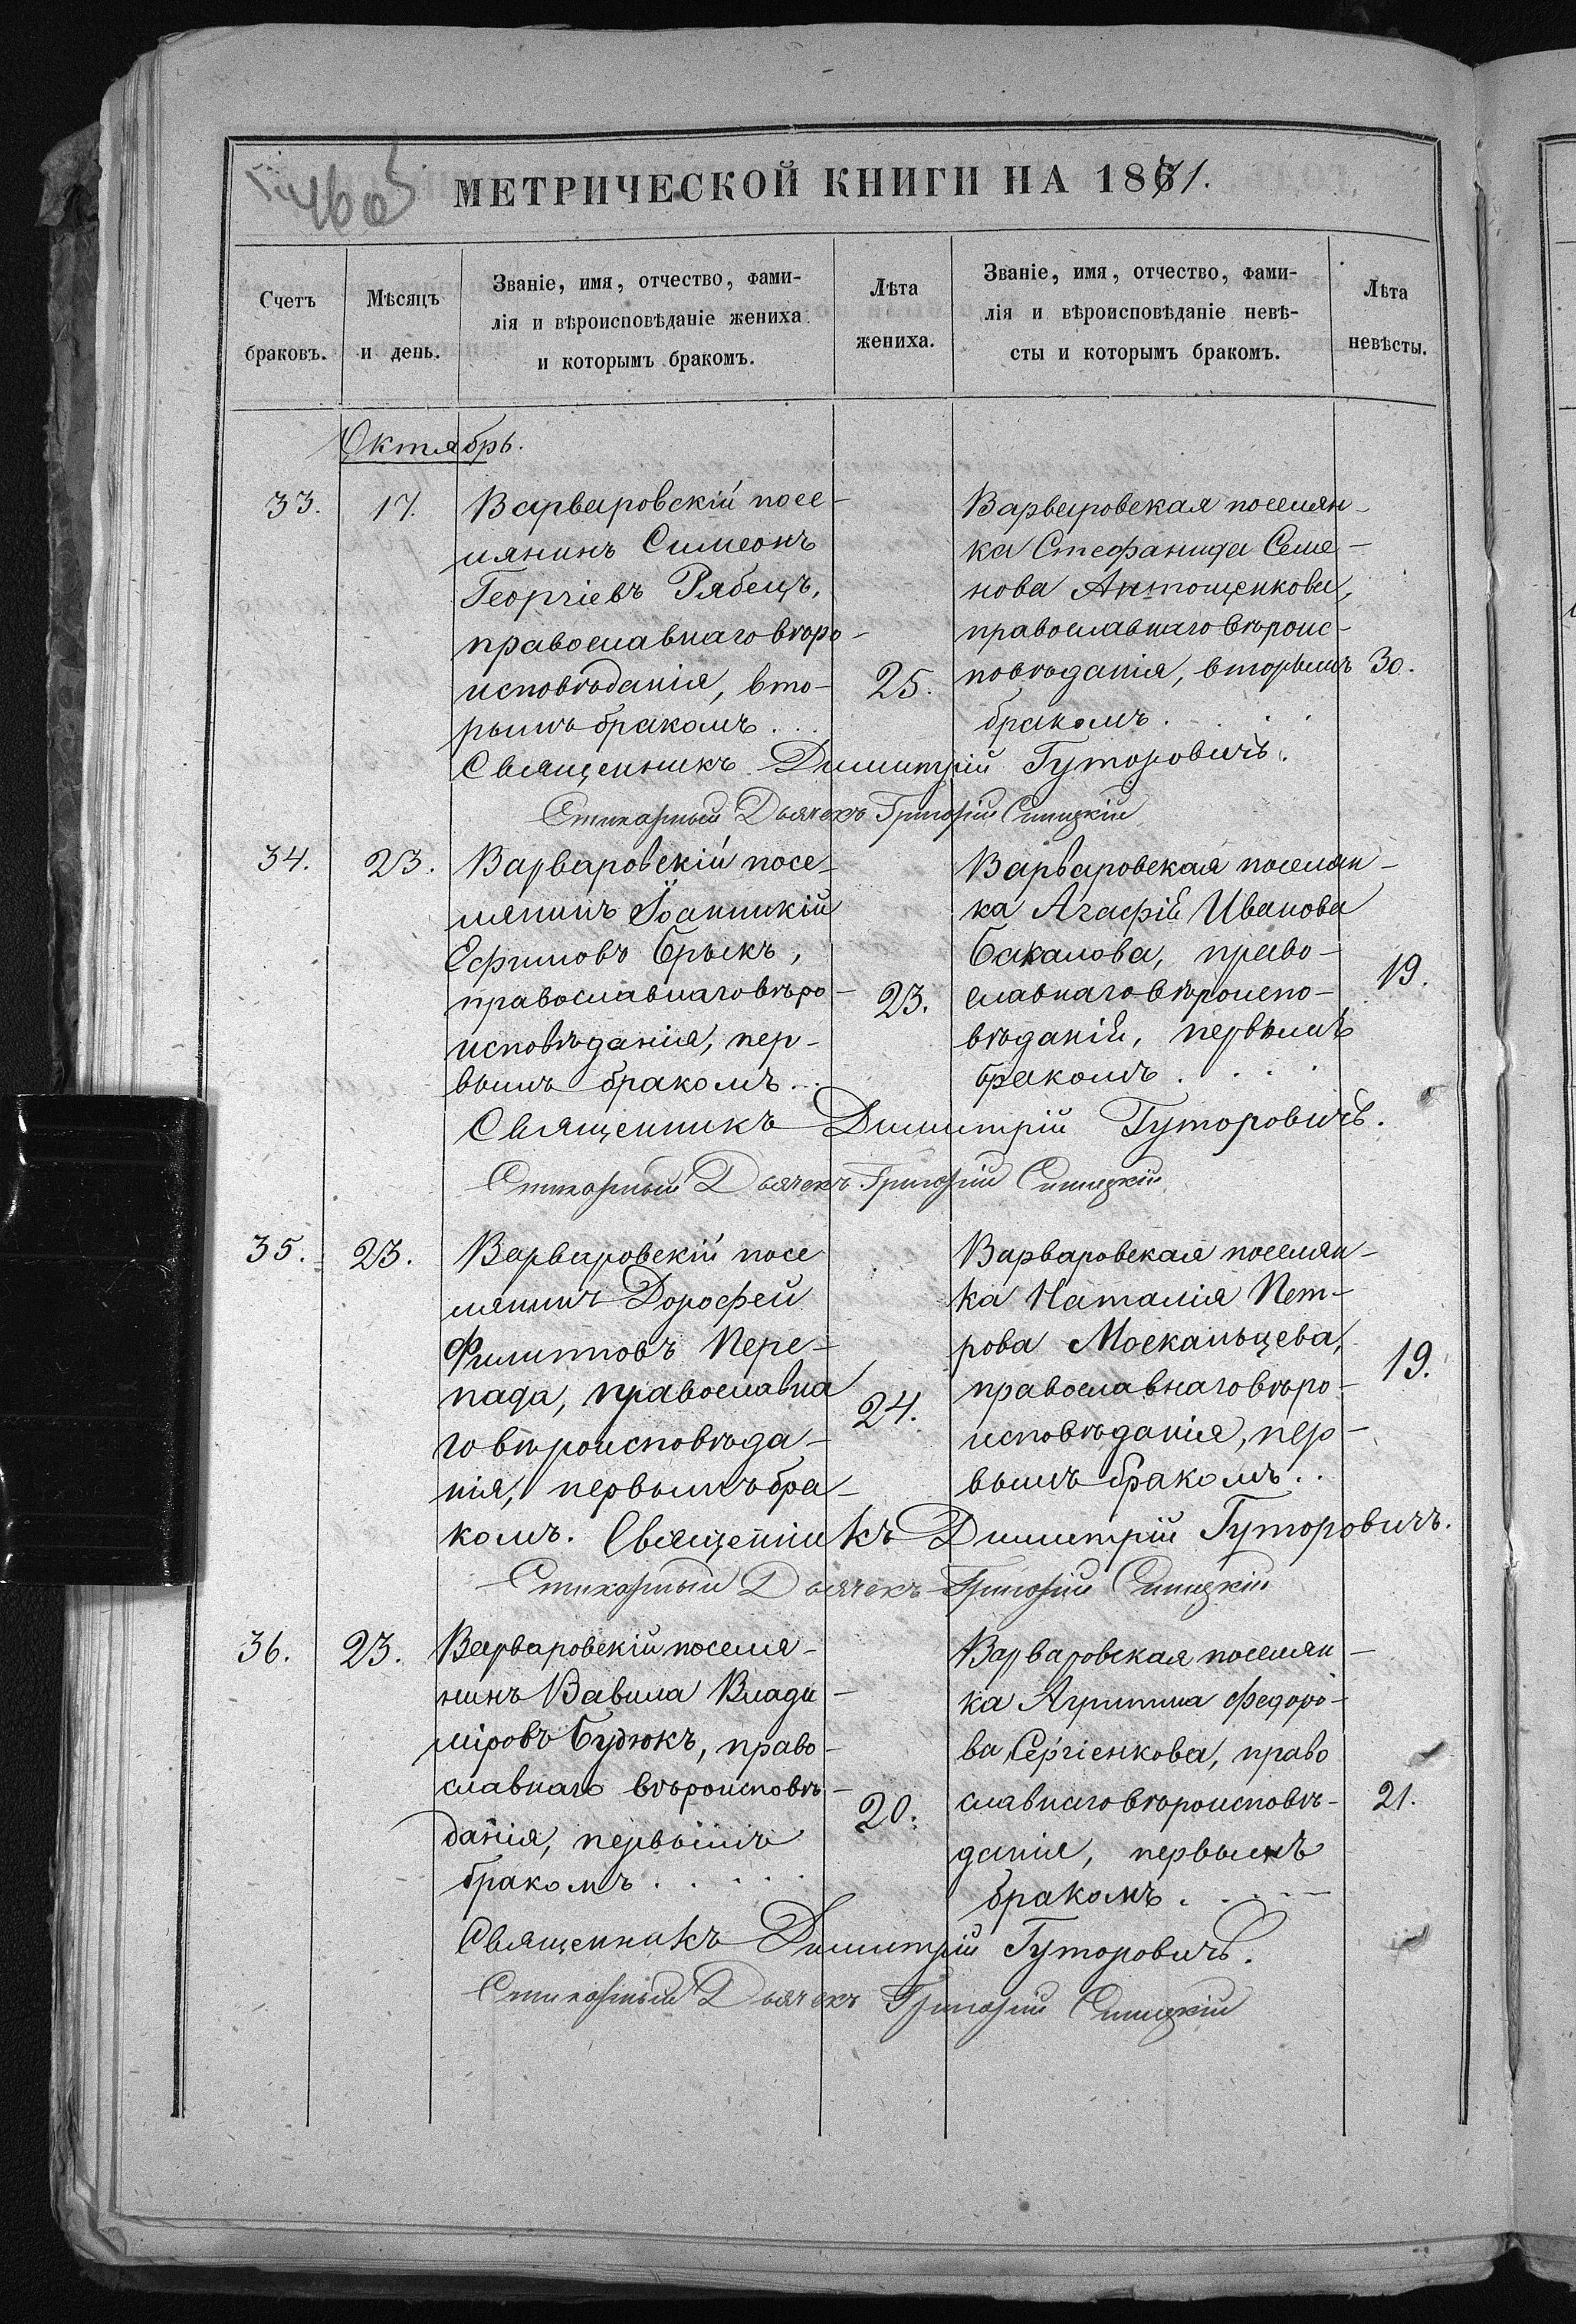 МЕТРИЧЕСКОЙ КНИГИ НА 1871.
Счетъ браковъ.
Мѣсяцъ и день.
Званіе, имя, отчество, фами-
лія и вѣроисповѣданіе жениха
и которымъ бракомъ.
Лѣта жениха.
Званіе, имя, отчество, фами-
лія и вѣроисповѣданіе невѣ-
сты и которымъ бракомъ.
Лѣта невѣсты.
Октябрь.
33.
17.
Варваровскій посе-
лянинъ Симеонъ
Георгіевъ Рябецъ,
православнаго вѣро-
исповѣданія, вто-
рымъ бракомъ...
25.
Варваровская поселян-
ка Стефанида Семе-
нова Антощенкова,
православнаго вѣроис-
повѣданія, вторымъ
бракомъ....
30.
Священникъ Димитрій Гуторовичъ.
Стихарный Дьячекъ Григорій Синицкій
34.
23.
Варваровскій посе-
лянинъ Іоанникій
Ефимовъ Брыкъ,
православнаго вѣро-
исповѣданія, пер-
вымъ бракомъ...
23.
Варваровская поселян-
ка Агафія Иванова
Бакалова, право-
славнаго вѣроиспо-
вѣданія, первымъ
бракомъ....
19.
Священникъ Димитрій Гуторовичъ.
Стихарный Дьячекъ Григорій Синицкій
35.
23.
Варваровскій посе
лянинъ Дорофей
Филиповъ Пере-
пада, православна
го вѣроисповѣда-
нія, первымъ бра-
комъ.
24.
Варваровская поселян-
ка Наталія Пет-
рова Москальцева,
православнаго вѣро-
исповѣданія, пер-
вымъ бракомъ..
19.
Священникъ Димитрій Гуторовичъ.
Стихарный Дьячекъ Григорій Синицкій
36.
23.
Варваровскій поселя-
нинъ Вавила Влади-
міровъ Будюкъ, право-
славнаго вѣроисповѣ-
данія, первымъ
бракомъ.....
20.
Варваровская поселян-
ка Агрипина Федоро-
ва Сергіенкова, право
славнаго вѣроисповѣ-
данія, первымъ
бракомъ....
21.
Священникъ Димитрій Гуторовичъ.
Стихарный Дьячекъ Григорій Синицкій